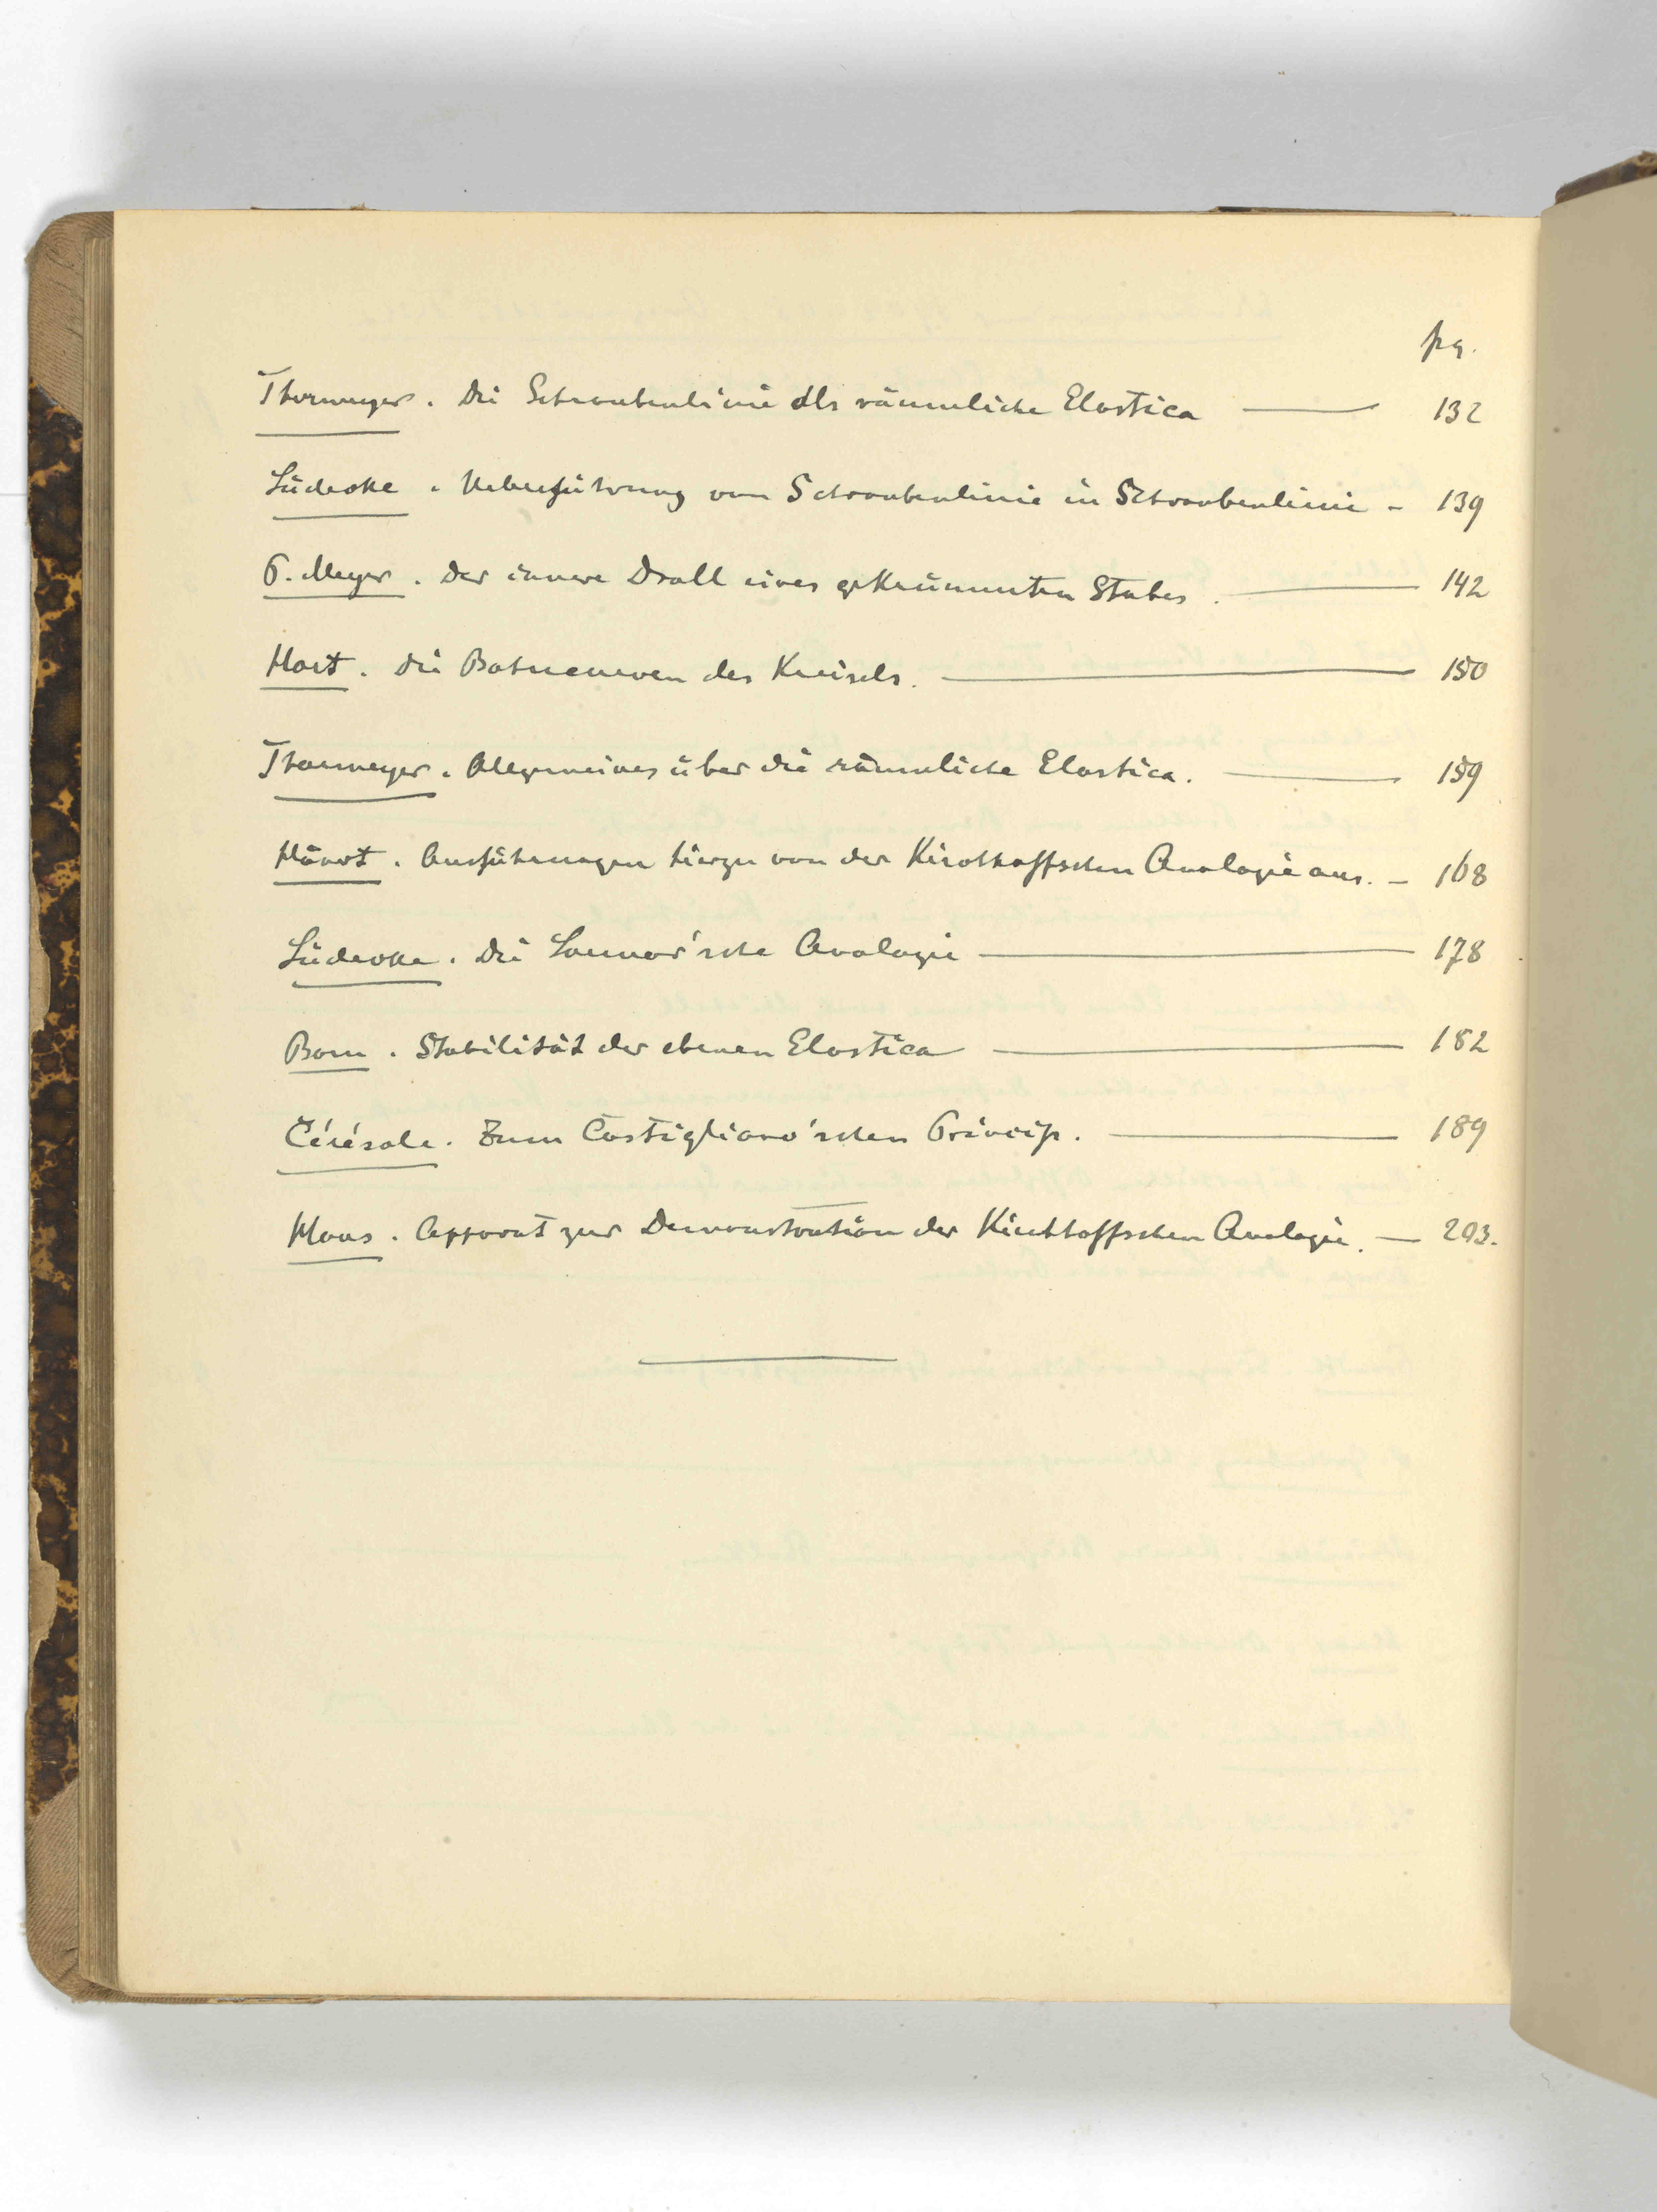 pg.
Thormeyer. Die Schraubenlinie als räumliche Elastica — 132
Lüdecke. Ueberführung von Schraubenlinie in Schraubenlinie - 139
P. Meyer. Der innere Drall eines gekrümmten Stabes. — 142
Hort. Die Bahncurven des Kreisels. — 150
Thormeyer. Allgemeines über die räumliche Elastica. — 159
Ausführungen hierzu von der Kirchhoffschen Analogie aus. — 168
Lüdecke. Die Larmor'sche Analogie — 178
Born. Stabilität der ebenen Elastica — 182
Cérésole. Zum Castigliano'schen Princip. — 189
Haas. Apparat zur Demonstration der Kirchhoffschen Analogie. — 203.